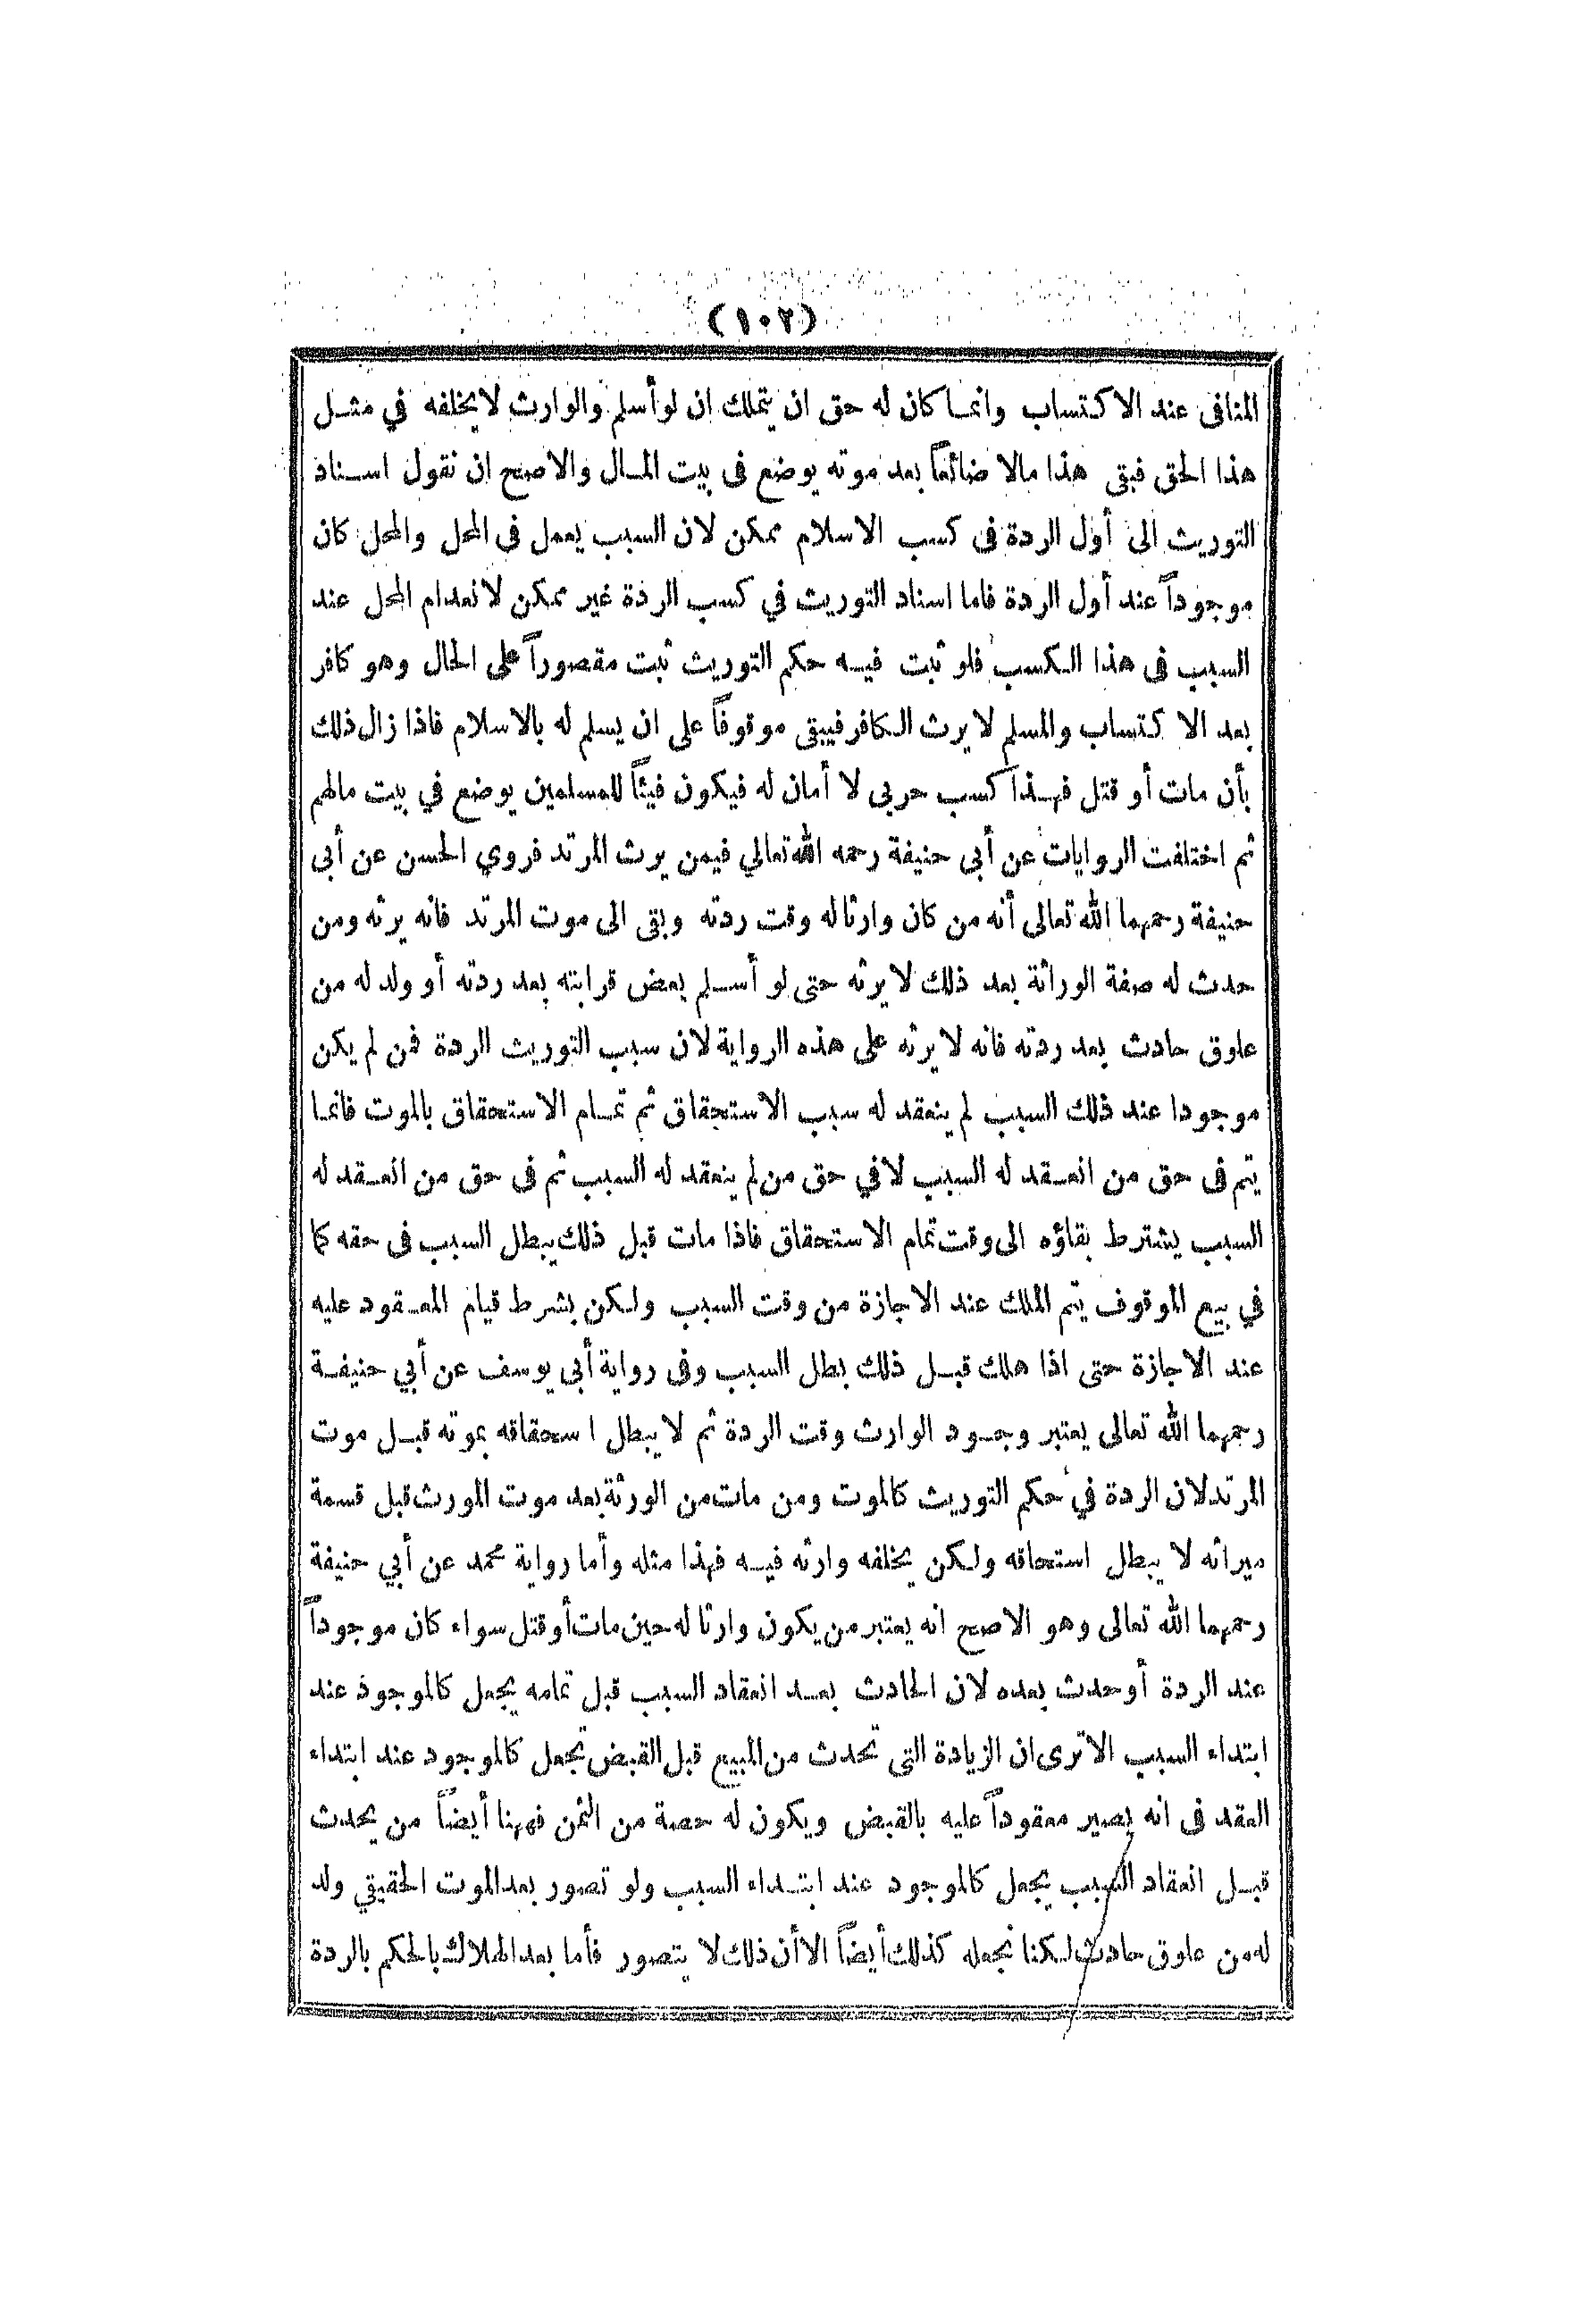 (١٠٢)
المنافى عند الاكتساب وانما كان له حق ان يتملك ان لو أسلم والوارث لا يخلفه في مثل
هذا الحق فبقى هذا مالا ضائعاً بعد موته يوضع فى بيت المال والاصح ان نقول اسناد
التوريث الى أول الردة فى كسب الاسلام ممكن لان السبب يعمل فى المحل والمحل كان
موجوداً عند أول الردة فاما اسناد التوريث في كسب الردة غير ممكن لانعدام المحل عند
السبب فى هذا الكسب فلو ثبت فيه حكم التوريث ثبت مقصوراً على الحال وهو كافر
بعد الاكتساب والمسلم لا يرث الكافر فيبقى موقوفاً على ان يسلم له بالاسلام فاذا زال ذلك
بأن مات أو قتل فهذا كسب حربى لا أمان له فيكون فيئاً للمسلمين يوضع في بيت مالهم
ثم اختلفت الروايات عن أبى حنيفة رحمه الله تعالي فيمن يرث المرتد فروي الحسن عن أبى
حنيفة رحمهما الله تعالى أنه من كان وارثا له وقت ردته وبقى الى موت المرتد فانه يرثه ومن
حدث له صفة الوراثة بعد ذلك لا يرثه حتى لو أسلم بعض قرابته بعد ردته أو ولد له من
علوق حادث بعد ردته فانه لا يرثه على هذه الرواية لان سبب التوريث الردة فمن لم يكن
موجودا عند ذلك السبب لم ينعقد له سبب الاستحقاق ثم تمام الاستحقاق بالموت فانما
يتم فى حق من انعقد له السبب لا في حق من لم ينعقد له السبب ثم فى حق من انعقد له
السبب يشترط بقاؤه الى وقت تمام الاستحقاق فاذا مات قبل ذلك يبطل السبب فى حقه كما
في بيع الموقوف يتم الملك عند الاجازة من وقت السبب ولكن بشرط قيام المعقود عليه
عند الاجازة حتى اذا هلك قبل ذلك بطل السبب وفى رواية أبى يوسف عن أبي حنيفة
رحمهما الله تعالى يعتبر وجود الوارث وقت الردة ثم لا يبطل اسحقاقه بموته قبل موت
المرتد لان الردة في حكم التوريث كالموت ومن مات من الورثة بعد موت المورث قبل قسمة
ميراثه لا يبطل استحاقه ولكن يخلفه وارثه فيه فهذا مثله وأما رواية محمد عن أبي حنيفة
رحمهما الله تعالى وهو الاصح انه يعتبر من يكون وارثا له حين مات أو قتل سواء كان موجوداً
عند الردة أو حدث بعده لان الحادث بعد انعقاد السبب قبل تمامه يجعل كالموجود عند
ابتداء السبب الا ترى ان الزيادة التى تحدث من المبيع قبل القبض تجعل كالموجود عند ابتداء
العقد فى انه يصير معقوداً عليه بالقبض ويكون له حصة من الثمن فههنا أيضاً من يحدث
قبل انعقاد السبب يجعل كالموجود عند ابتداء السبب ولو تصور بعد الموت الحقيقي ولد
له من علوق حادث لكنا نجعله كذلك أيضاً الا أن ذلك لا يتصور فأما بعد الهلاك بالحكم بالردة